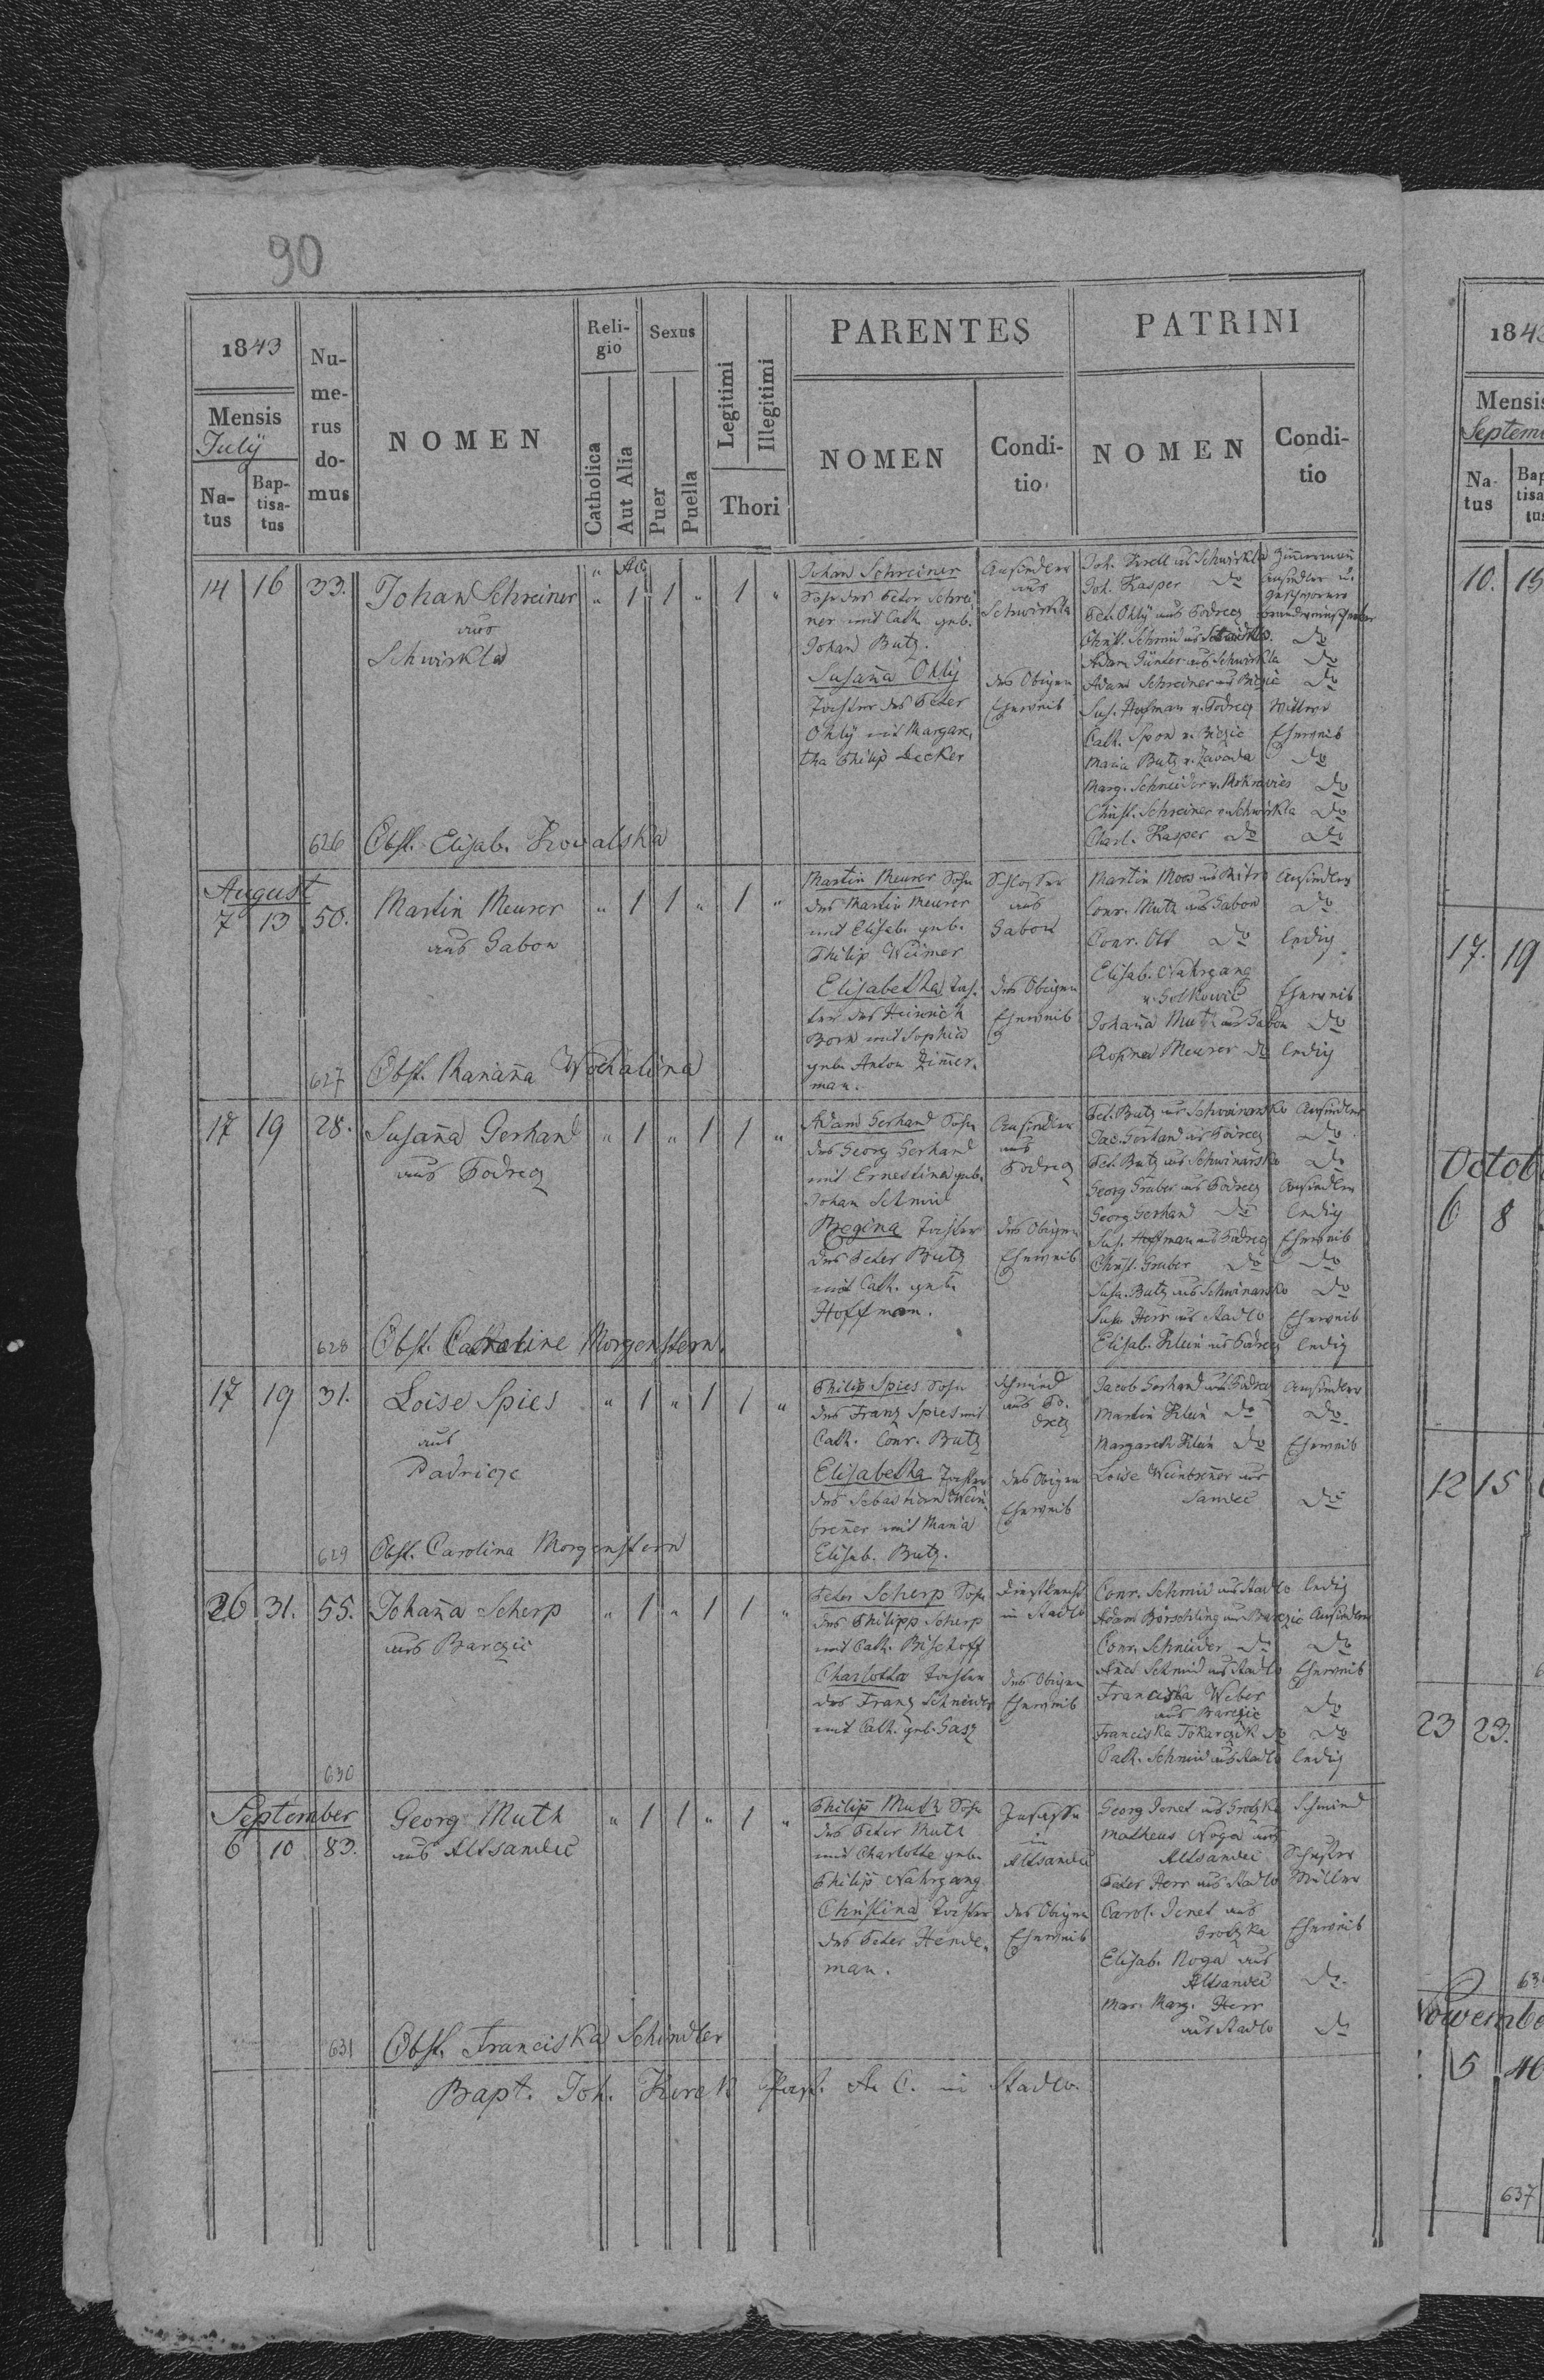 90
1843
Mensis
July
Na-
tus
Bap-
tisa-
tus
Nu-
me-
rus
do-
mus
NOMEN
Reli-
gio
Catholica
Aut Alia
Sexus
Puer
Puella
Legitimi
Illegitimi
Thori
PARENTES
NOMEN
Condi-
tio
PATRINI
NOMEN
Condi-
tio
14 16 33. Johan Schreiner " 1 1 " 1 "
aus
Schwirkla
Johan Schreiner
Sohn des Peter Schrei
ner mit Cath. geb.
Johan Butz.
Susana Ohlÿ
Tochter des Peter
Ohlÿ mit Margare,
tha Philip Decker
Ansiedler
aus
Schwirkla
des Obigen
Eheweib
Joh. Krell aus Schwirkla Zimmermann
Joh. Kasper do Ansiedler u.
geschworner
Pet. Ohlÿ aus Podrecz
Christ. Schmid aus do
Adam Günter aus Schwirkla do
Adam Schreiner aus do
Sus. Hofman v. Podrecz Wittwe
Cath. Spon v. Eheweib
Maria Butz v. Zavada do
Marg. Schneider v. Mokrawies do
Christ. Schreiner v. Schwirkla do
Charl. Kasper do do
626 Obst. Elisab. Kowalska
August
7 13 50. Martin Meurer " 1 1 " 1 "
aus Gabon
Martin Meurer Sohn
des Martin Meurer
mit Elisab. geb.
Philip Weimer
Elisabetha Toch.
ter des Heinrich
Born mit Sophia
geb. Anton Zimmer.
man.
Schlosser
aus
Gabon
des Obigen
Eheweib
Martin Moos aus Ansiedler
Conr. Muth aus Gabon do
Conr. Ott do ledig
Elisab. Nahrgang
v. Golkowic Eheweib
Johana Muth aus Gabon do
Meurer do ledig
627 Obst. Mariana
17 19 28. Susana Gerhand " 1 " 1 1 "
aus Podrecz
Adam Gerhand Sohn
des Georg Gerhand
mit Ernestina geb.
Johan Schmid
Regina Tochter
des Peter Butz
mit Cath. geb.
Hoffman.
Ansiedler
aus
Podrecz
des Obigen
Eheweib
Pet. Butz aus Schwinarsko Ansiedler
Jac. Gerhand aus Podrecz do
Pet. Butz aus Schwinarsko do
Georg Gruber aus Podrecz Ansiedler
Georg Gerhand do ledig
Sus. Hoffman aus Podrecz Eheweib
Christ. Gruber do do
Susa. Butz aus Schwinarsko do
Susa. Herr aus Stadlo Eheweib
Elisab. Klein aus Podrecz ledig
628 Obst. Morgenstern.
17 19 31. Loise Spies " 1 " 1 1 "
aus
Podrieze
Philip Spies Sohn
des Franz Spies mit
Cath. Conr. Butz
Elisabetha Tochter
des Sebastian Wein
brener mit Maria
Elisab. Butz.
Schmied
aus Po.
dretz
des Obigen
Eheweib
Jacob Gerhand aus Podrec Ansiedler
Martin Klein do do
Margareth Klein do Eheweib
Loise Weinbrener aus
Sandec do
629 Obst. Carolina Morgenstern
26 31. 55. Johana Scherp " 1 " 1 1 "
aus Barczic
Peter Scherp Sohn
des Philipp Scherp
mit Cath. Bischoff
Charlotta Tochter
des Franz Schneider
mit Cath. geb. Gasz
Dienstknecht
in Stadlo
des Obigen
Eheweib
Conr. Schmid aus Stadlo ledig
Adam Börschling aus Barczic Ansiedler
Conr. Schneider do do
Schmid aus Stadlo Eheweib
Franciska Weber
aus Barczic do
Franciska Tokarczik do do
Cath. Schmid aus Stadlo ledig
630
September
6 10 83. Georg Muth " 1 1 " 1 "
aus Altsandec
Philip Muth Sohn
des Peter Muth
mit Charlotte geb.
Philip Nahrgang
Christina Tochter
des Peter Hende.
man.
Insasse
in
Altsandec
des Obigen
Eheweib
Georg Jenet aus Schmied
Matheus Noga aus
Altsandec Schuster
Peter Herr aus Stadlo Müller
Carol. Jenet aus
Eheweib
Elisab. Noga aus
Altsandec do
Mar. Marg. Herr
aus Stadlo do
631 Obst. Franciska Schindler
Bapt. Joh. Past. A. C. in Stadlo.
Mensis
Na-
tus
10. 15
17. 19
6 8
12 15
23 23.
5
637